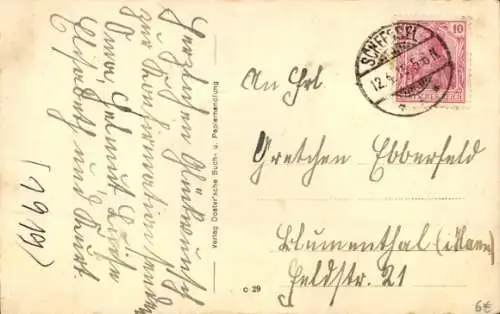 Herzlichen Glückwunsch
zur Konfirmation senden
Oma, Helmut, Lische
Elisabeth und Kurt.
(1919)
Verlag Doster'sche Buch- u. Papierhandlung
c 29
SCHEESSEL
12.4. 5-6 N.
10
An Frl.
Gretchen Ebberfeld
Blumenthal (Hann)
Feldstr. 21
6€